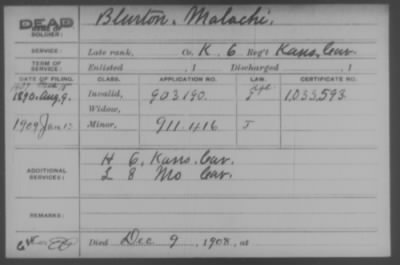 DEAD
NAME OF SOLDIER:
Blurton, Malachi.
SERVICE:
Late rank, Co. K. 6 Reg't Kans. Cav.
TERM OF SERVICE:
Enlisted , 1 Discharged , 1
DATE OF FILING. CLASS. APPLICATION NO. LAW. CERTIFICATE NO.
1890. Aug. 9. Invalid, 903.190. 1,033,593
Widow,
1909 Jan 13 Minor, 911.416 J
ADDITIONAL SERVICES:
H 6. Kans. Cav.
L 8 Mo Cav.
REMARKS:
Died Dec 9, 1908, at